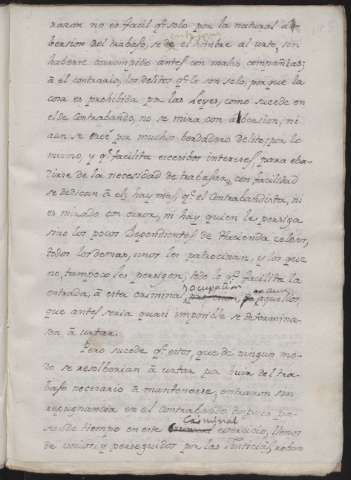 raxan no es facil qe. solo por la natural aversion
version del trabajo, se dé el hombre al urto, sin
haberse corrompido antes con malas compañias;
á el contrario, los delitos qe. lo son solo, porque la
cosa es prohibida por las Leyes, como sucede en
el de Contrabando, no se mira con aversion, ni
aun se cree por muchos verdadero delito; por lo
mismo, y qe. facilita excesivos intereses para eba-
dirse de la necesidad de trabajar, con facilidad
se dedican á él; hay mas, qe. el Contrabandista, ni
es mirado con orror, ni hay quien les persiga
sino los pocos dependientes de Hacienda celosos,
todos los demas, unos los patrocinan, y los que
no, tampoco les persiguen; todo lo qe. facilita la
entrada, á esta criminal ocupacion, á aquellos,
que antes seria quasi imposible se determina-
sen á urtar.
Pero sucede qe. estos, que de ningun mo-
do se resolberian á urtar por huir del tra-
bajo necesario á mantenerse, entraron sin
repugnancia en el contrabando, despues pa-
sado tiempo en este Criminal exercicio, llenos
de vicios, y perseguidos por las Justicias, roban